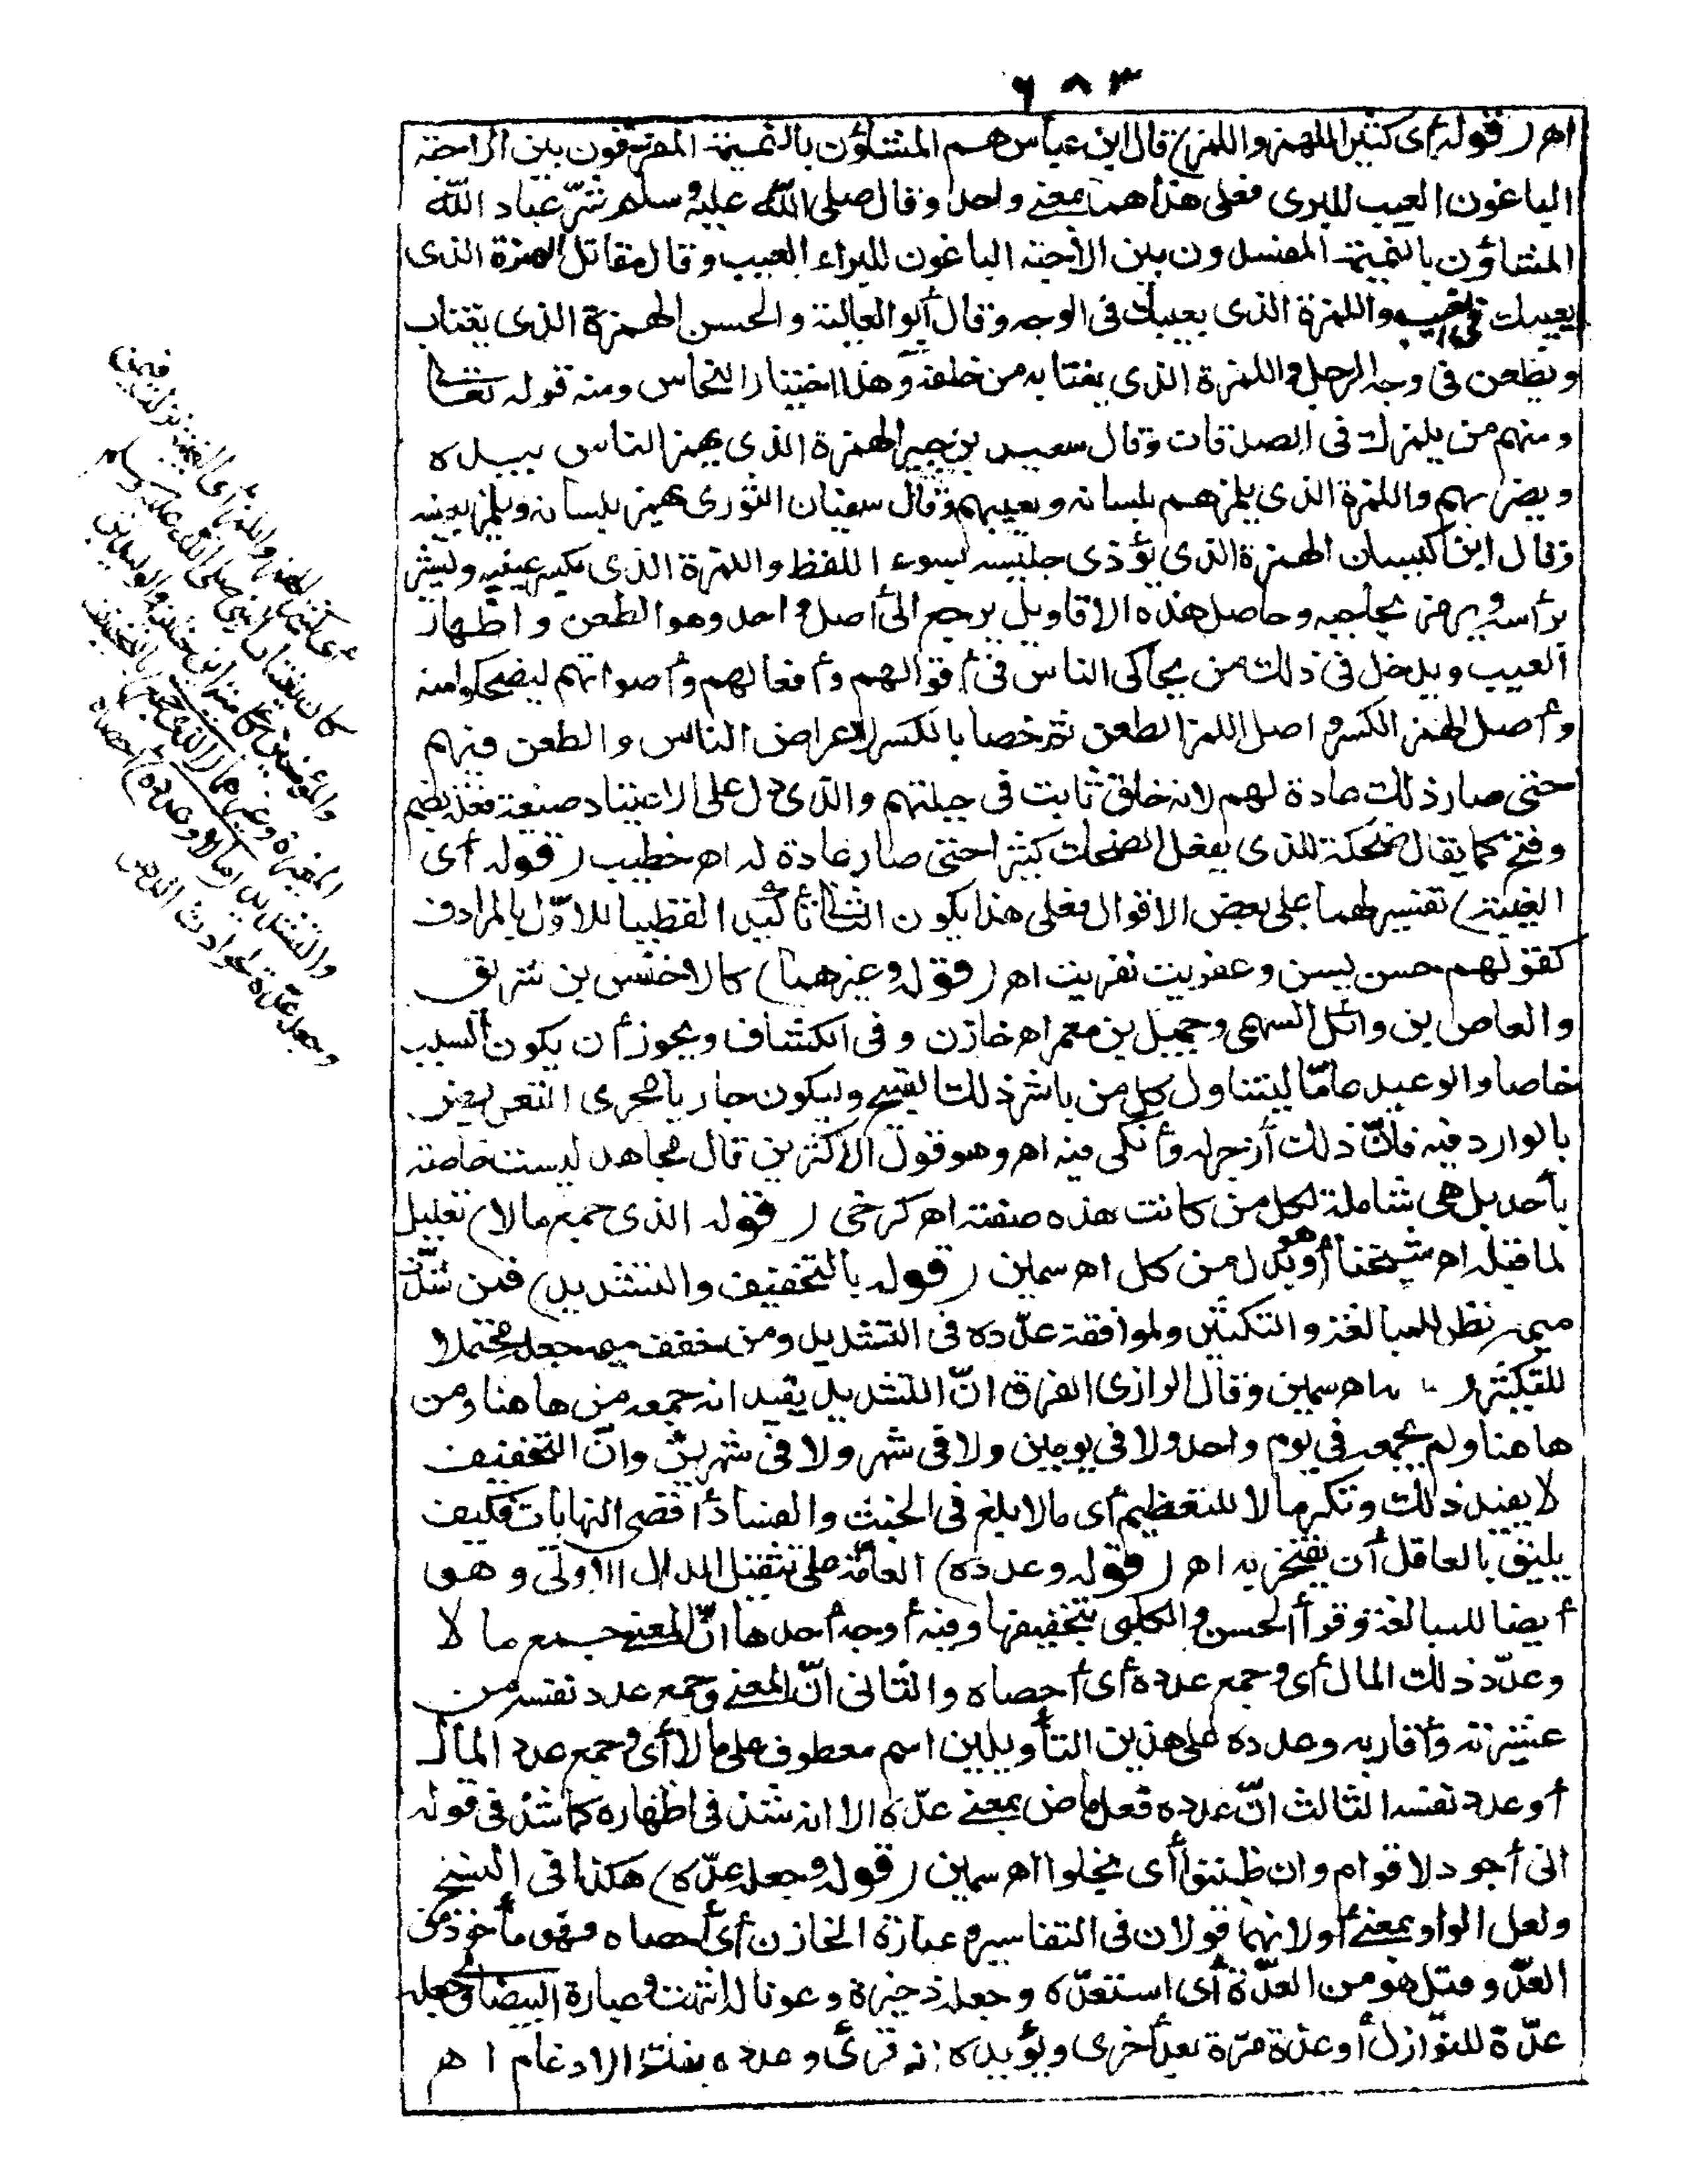 ٦٨٣
اهـ (قوله أى كثير الهمز واللمز) قال ابن عباس هم المشاؤن بالنميمة المفرقون بين الأحبة
الباغون العيب للبرى فعلى هذا هما بمعنى واحد وقال صلى الله عليه وسلم شرّ عباد الله
المشاؤن بالنميمة المفسدون بين الأحبة الباغون للبراء العيب وقال مقاتل الهمزة الذى
يعيبك فى الغيب واللمزة الذى يعيبك فى الوجه وقال أبو العالية والحسن الهمزة الذى يغتاب
ويطعن فى وجه الرجل واللمزة الذى يغتابه من خلفه وهذا اختيار النحاس ومنه قوله تعالى
ومنهم من يلمزك فى الصدقات وقال سعيد بن جبير الهمزة الذى يهمز الناس بيده
ويضربهم واللمزة الذى يلمزهم بلسانه ويعيبهم وقال سفيان الثورى يهمز بلسانه ويلمز بعينه
وقال ابن كيسان الهمزة الذى يؤذى جليسه بسوء اللفظ واللمزة الذى يكسر عينيه ويشير
برأسه ويرمز بحاجبه وحاصل هذه الاقاويل يرجع الى أصل واحد وهو الطعن واظهار
العيب ويدخل فى ذلك من يحاكى الناس فى أقوالهم وأفعالهم وأصواتهم ليضحكوا منه
وأصل الهمز الكسر واصل اللمز الطعن ثم خصا بالكسر لاعراض الناس والطعن فيهم
حتى صار ذلك عادة لهم لانه خلق ثابت فى جبلتهم والذى دل على الاعتياد صيغة فعلة بضم
وفتح كما يقال ضحكة للذى يفعل الضحك كثيرا حتى صار عادة له اهـ خطيب (قوله أى
الغيبة) تفسير لهما على بعض الاقوال فعلى هذا يكون الثانى تأكيدا لفظيا للاوّل بالمرادف
كقولهم حسن بسن وعفريت نفريت اهـ (قوله وغيرهما) كالاخنس بن شريق
والعاص بن وائل السهمى وجميل بن معمر اهـ خازن وفى الكشاف ويجوز أن يكون السبب
خاصا والوعيد عامّا ليتناول كل من باشر ذلك القبيح وليكون جاريا مجرى التعريض
بالوارد فيه فانّ ذلك أزجر له وأنكى فيه اهـ وهو قول الاكثرين قال مجاهد ليست خاصة
بأحد بل هى شاملة لكل من كانت هذه صفته اهـ كرخى (قوله الذى جمع مالا) تعليل
لما قبله اهـ شيخنا أو هو بدل من كل اهـ سمين (قوله بالتخفيف والتشديد) فمن شدّد
ميمه نظر للمبالغة والتكثير ولموافقة عدّده فى التشديد ومن خفف ميمه جعله محتملا
للتكثير اهـ سمين وقال الرازى الفرق انّ التشديد يفيد انه جمعه من هاهنا ومن
هاهنا ولم يجمعه فى يوم واحد ولا فى يومين ولا فى شهر ولا فى شهرين وانّ التخفيف
لا يفيد ذلك وتنكير مالا للتعظيم أى مالا بلغ فى الخبث والفساد أقصى النهايات فكيف
يليق بالعاقل أن يفتخر به اهـ (قوله وعدده) العامّة على تثقيل الدال الاولى وهو
أيضا للمبالغة وقرأ الحسن والكلبى بتخفيفها وفيه أوجه أحدها انّ المعنى جمع مالا
وعدّد ذلك المال أى وجمع عدده أى أحصاه والثانى انّ المعنى وجمع عدد نفسه من
عشيرته وأقاربه وعدده على هذين التأويلين اسم معطوف على مالا أى وجمع عدد المال
أو عدد نفسه الثالث انّ عدده فعل ماض بمعنى عدّه الا انه شذ فى اظهاره كما شذ فى قوله
انى أجود لاقوام وان ظننوا أى بخلوا اهـ سمين (قوله وجعله عدّة) هكذا فى النسخ
ولعل الواو بمعنى أو لانهما قولان فى التفاسير وعبارة الخازن أى أحصاه فهو مأخوذ من
العدّ وقيل هو من العدّة أى استعدّه وجعله ذخيرة وعونا له انتهت وعبارة البيضاوى جعله
عدّة للنوازل أو عدّه مرّة بعد أخرى ويؤيده انه قرئ وعدده بفك الادغام اهـ
أى كثير الهمز واللمز أى الغيبة نزلت فيمن
كان يغتاب النبى صلى الله عليه وسلم
والمؤمنين كأمية ابن خلف والوليد ابن
المغيرة وغيرهما (الذى جمع) بالتخفيف
والتشديد (مالا وعدده) أحصاه
وجعله عدّة لحوادث الدهر